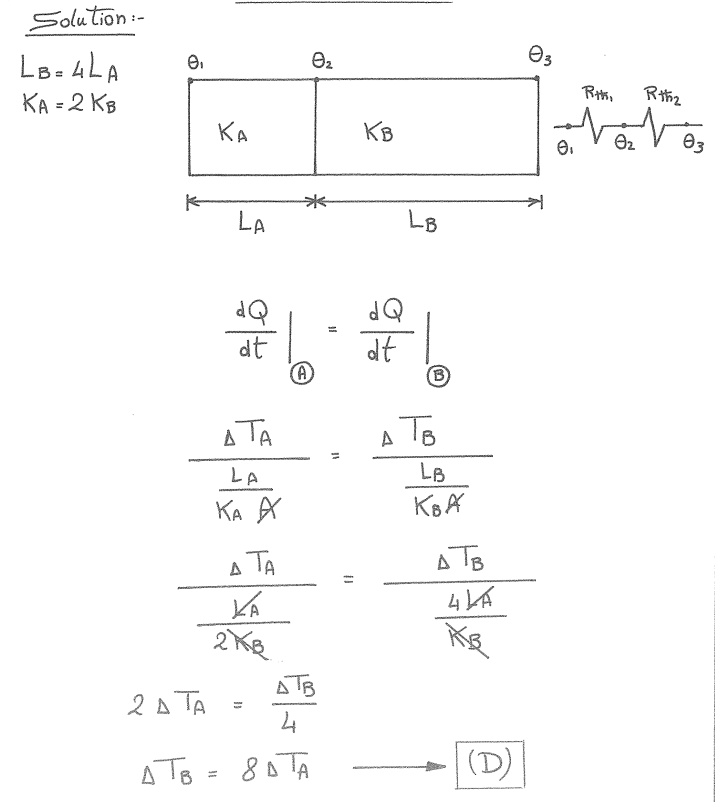 Solution:-
LB = 4LA
KA = 2KB
θ1 θ2 θ3
KA KB
Rth1 Rth2
θ1 θ2 θ3
LA LB
dQ/dt |Ⓐ = dQ/dt |Ⓑ
ΔTA / (LA / KA A) = ΔTB / (LB / KB A)
ΔTA / (LA / 2KB) = ΔTB / (4LA / KB)
2ΔTA = ΔTB / 4
ΔTB = 8ΔTA → (D)